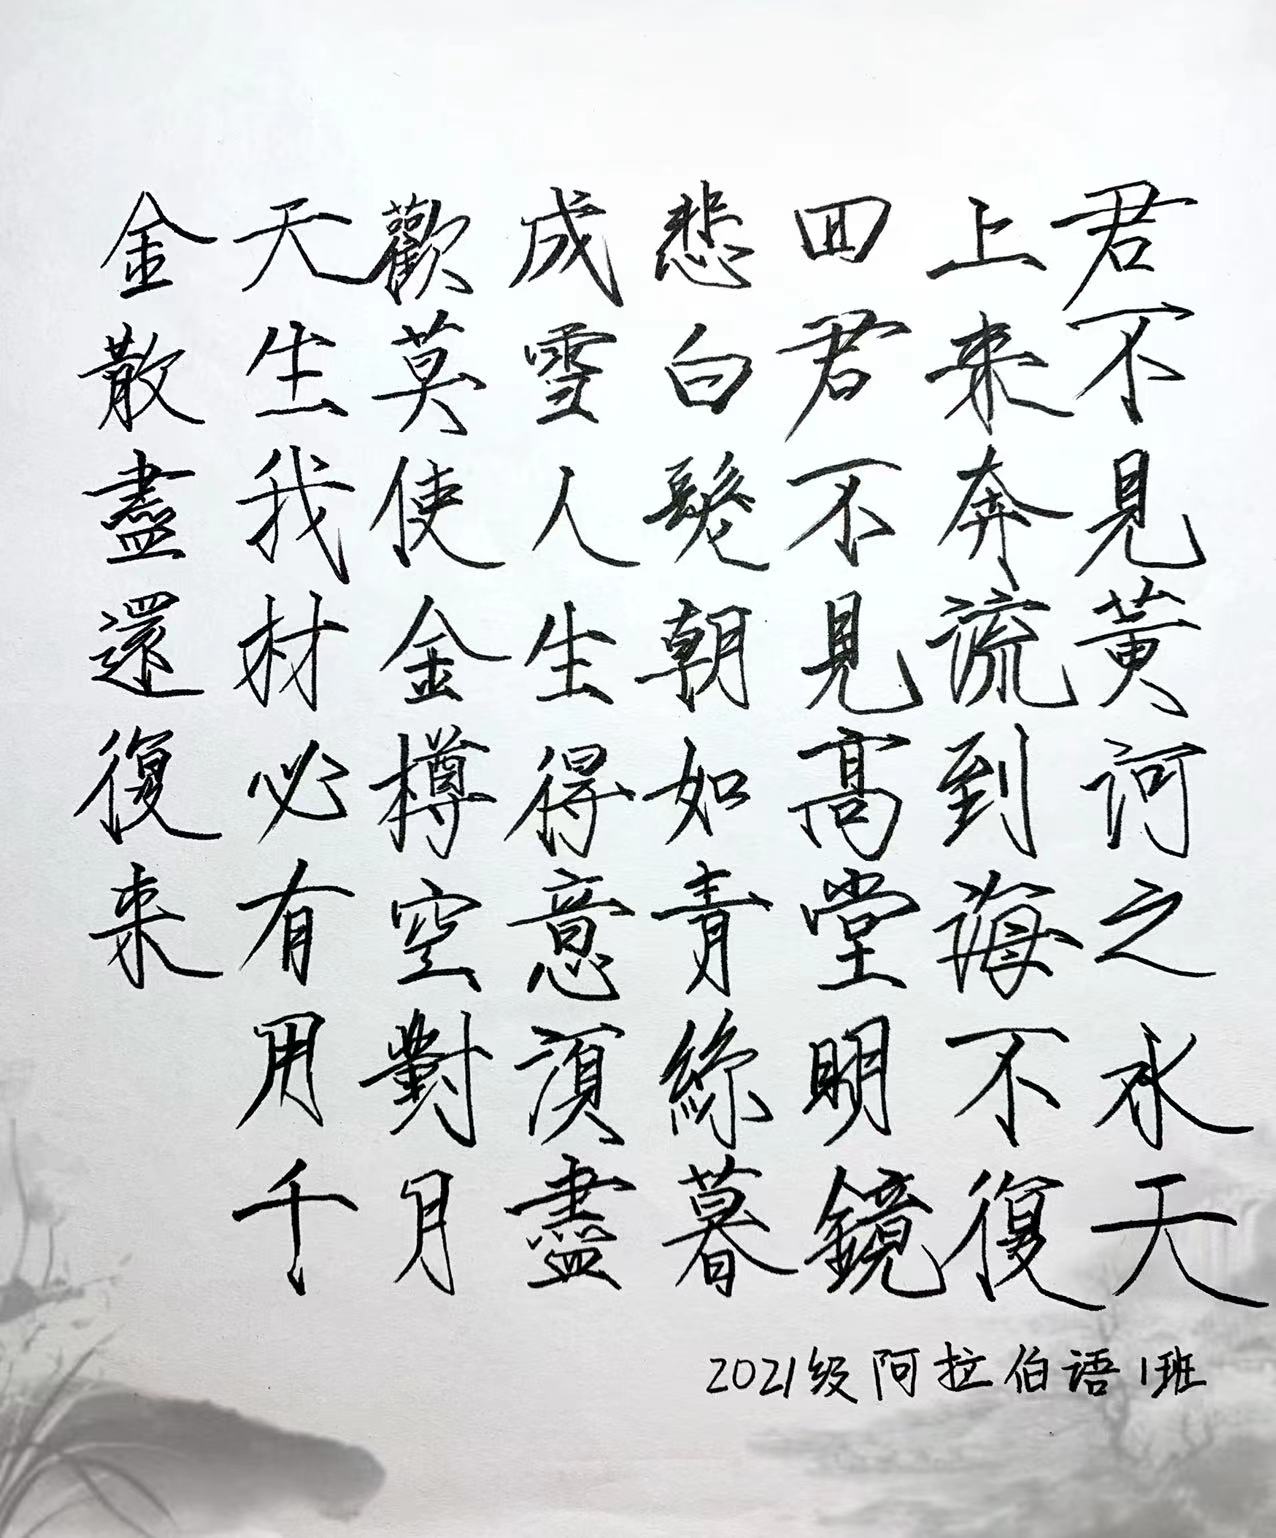 君不見黃河之水天
上来奔流到海不復
回君不見髙堂明鏡
悲白髮朝如青絲暮
成雪人生得意須盡
歡莫使金樽空對月
天生我材必有用千
金散盡還復来
2021级阿拉伯语1班